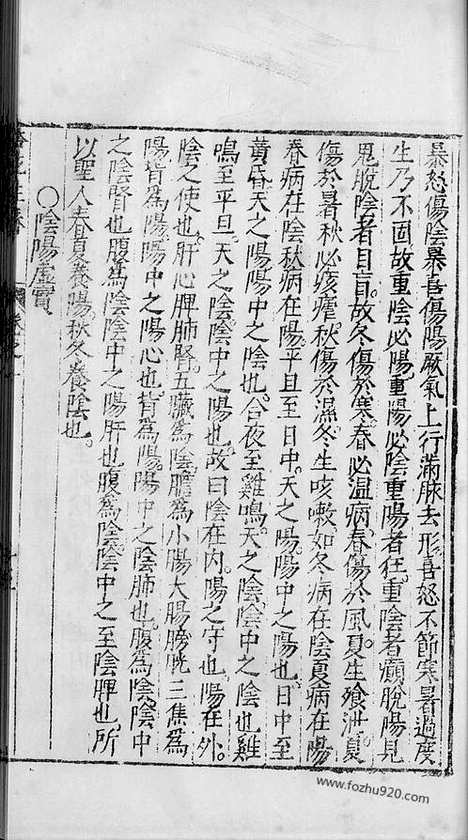 暴怒傷陰暴喜傷陽厥氣上行滿脉去形喜怒不節寒暑過度
生乃不固故重陰必陽重陽必陰重陽者狂重陰者癲脫陽見
鬼脫陰者目盲故冬傷於寒春必温病春傷於風夏生飱泄夏
傷於暑秋必痎瘧秋傷於濕冬生咳嗽如冬病在陰夏病在陽
春病在陰秋病在陽平旦至日中天之陽陽中之陽也日中至
黃昏天之陽陽中之陰也合夜至雞鳴天之陰陰中之陰也雞
鳴至平旦天之陰陰中之陽也故曰陰在内陽之守也陽在外
陰之使也肝心脾肺腎五臟為陰膽為小腸大腸膀胱三焦為
陽皆為陽陽中之陽心也背為陽陽中之陰肺也腹為陰陰中
之陰腎也腹為陰陰中之陽肝也腹為陰陰中之至陰脾也所
以聖人春夏養陽秋冬養陰也
○陰陽虛實
www.fozhu920.com